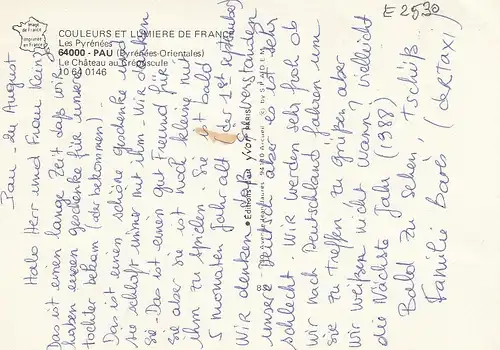 Image
de France
Imprimée
en France
COULEURS ET LUMIERE DE FRANCE
Les Pyrénées
64000 - PAU (Pyrénées-Orientales)
Le Château au Crépuscule
10 64 0146
E 2530
● Éditions
YVON
PARIS
94110 Arcueil
by SPADEM
Pau - 24 August
Halo Herr und Frau Klein,
Das ist einen lange Zeit daß wir
haben einen geschenke für unsere
töchter bekam (der bekommen)
Das ist einen schöne geschenke und
sie schlaft immer mit ihm - Wir danken
Sie - Das ist einen gut Freund für
Sie aber sie ist noch kleine mit
ihm zu spielen. Sie ist bald
5 monaten Jahr alt (de 1st september)
Wir denken daß Sie verstanden
unsere Deutsch aber es ist sehr
schlecht. Wir werden sehr froh ob
wir nach Deutschland fahren um
Sie zu treffen zu grüßen aber
wir weißen nicht wann? vielleicht
die Nächste Jahr (1988)
Bald zu sehen Tschüß
Familie (der Taxi)